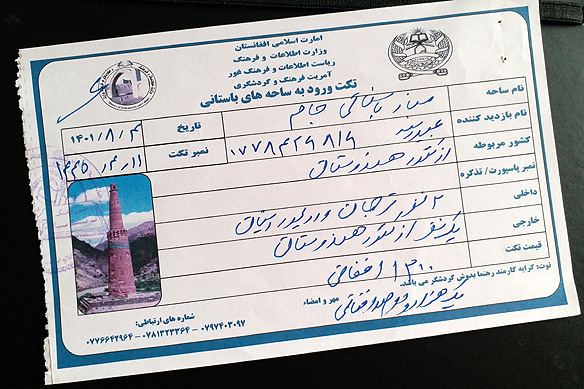 امارت اسلامی افغانستان
وزارت اطلاعات و فرهنگ
ریاست اطلاعات و فرهنگ غور
آمریت فرهنگ و گردشگری
تکت ورود به ساحه های باستانی
نام ساحه منار باستانی جام
نام بازدید کننده
تاریخ ۱۴۰۱/۸/۴
کشور مربوطه از کشور هندوستان
نمبر تکت
نمبر پاسپورت/ تذکره
داخلی ۲ نفر ترجمان و دریور
خارجی یک نفر از کشور هندوستان
قیمت تکت ۱۳۰۰ افغانی
نوت: کرایه کارمند رهنما بدوش گردشگر می باشد.
مهر و امضاء
شماره های ارتباطی:
0776642964 - 0781323364 - 0797403097